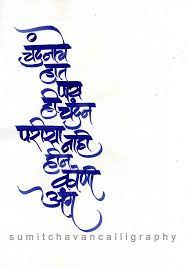 चंदनाचे
हात पाय
ही चंदन
परीसा नाही
हीन
कोणी
अंग
sumitchavancalligraphy